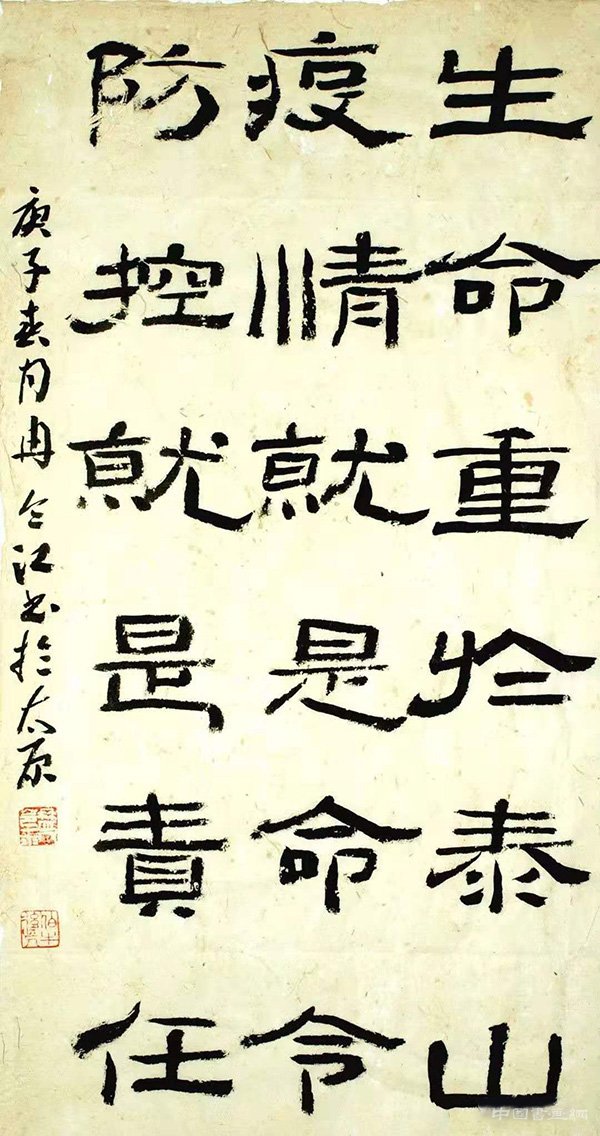 生命重於泰山
疫情就是命令
防控就是責任
庚子春月冉令江书於太原
中国書画網